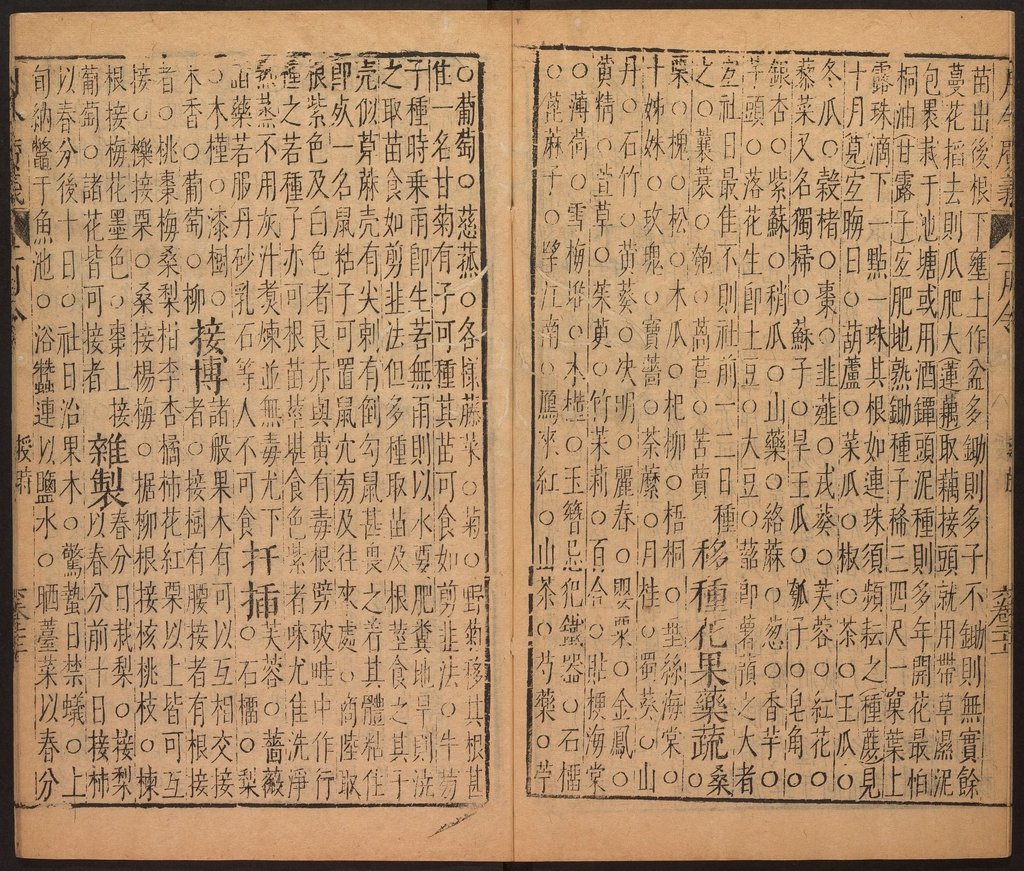 苗出後根下壅土作盆多鋤則多子不鋤則無實餘
蔓花掐去則瓜肥大蓮藕取藕接頭就用帶草濕泥
包裹栽于池塘或用酒罈頭泥種則多年開花最怕
桐油甘露子宜肥地熟鋤種子稀三四尺一窠葉上
露珠滴下一點一珠其根如連珠須頻耘之種蘑見
十月覓宜晦日○葫蘆○菜瓜○椒○茶○王瓜○
冬瓜○榖楮○棗○韭薤○戎葵○芙蓉○紅花○
藜菜又名獨掃○蘇子○旱王瓜○瓠子○皂角○
銀杏○紫蘇○稍瓜○山藥○絡蔴○葱○香芋○
芋頭○落花生卽土豆○大豆○䪥卽薯蕷之大者
宜社日最佳不則社前一二日種 移種花果藥蔬桑
之○蘘荷○萵苣○苦蕒
栗○槐○松○木瓜○杞柳○梧桐○垂絲海棠○
十姊妹○玫瑰○寶薔○荼蘼○月桂○蜀葵○山
丹○石竹○黃葵○决明○麗春○罌粟○金鳳○
黃精○萱草○茱萸○竹茉莉○百合○貼梗海棠
○薄荷○雪梅堆○木槿○玉簪忌犯鐵器○石橊
○萆蔴子○映江南○鴈來紅○山茶○芍藥○苧
○葡萄○慈菰○各樣蔬菜○菊○野菊移其根甚
佳一名甘菊有子可種其苗可食如剪韭法○牛蒡
子種時乘雨卽生若無雨則以水要肥糞地旱則澆
之取苗食如剪韭法但多種取苗及根莖食之其子
殼似萆蔴殼有尖刺有倒勾鼠甚畏之若其體粘住
卽死一名鼠粘子可置鼠穴旁及往來處○商陸取
根紫色及白色者良赤與黃有毒根劈破畦中作行
種之若種子亦可根苗莖堪食色紫者味尤佳洗淨
熟蒸不用灰汁煮煉並無毒尤下 扦插 芙蓉○薔薇
諸藥若服丹砂乳石等人不可食 ○石橊○梨
○木槿○漆樹○ 接博 諸般果木有可以互相交接
木香○葡萄○柳 者○接樹有腰接者有根接
者○桃棗梅桑梨柏李杏橘柿花紅栗以上皆可互
接○櫟接栗○桑接楊梅○椐柳根接核桃枝○楝
根接梅花墨色○棗上接 雜製 春分日栽梨○接梨
葡萄○諸花皆可接者 以春分前十日接柿
以春分後十日○社日治果木○驚蟄日禁蟻○上
旬納鱉于魚池○浴蠶連以鹽水○晒薹菜以春分